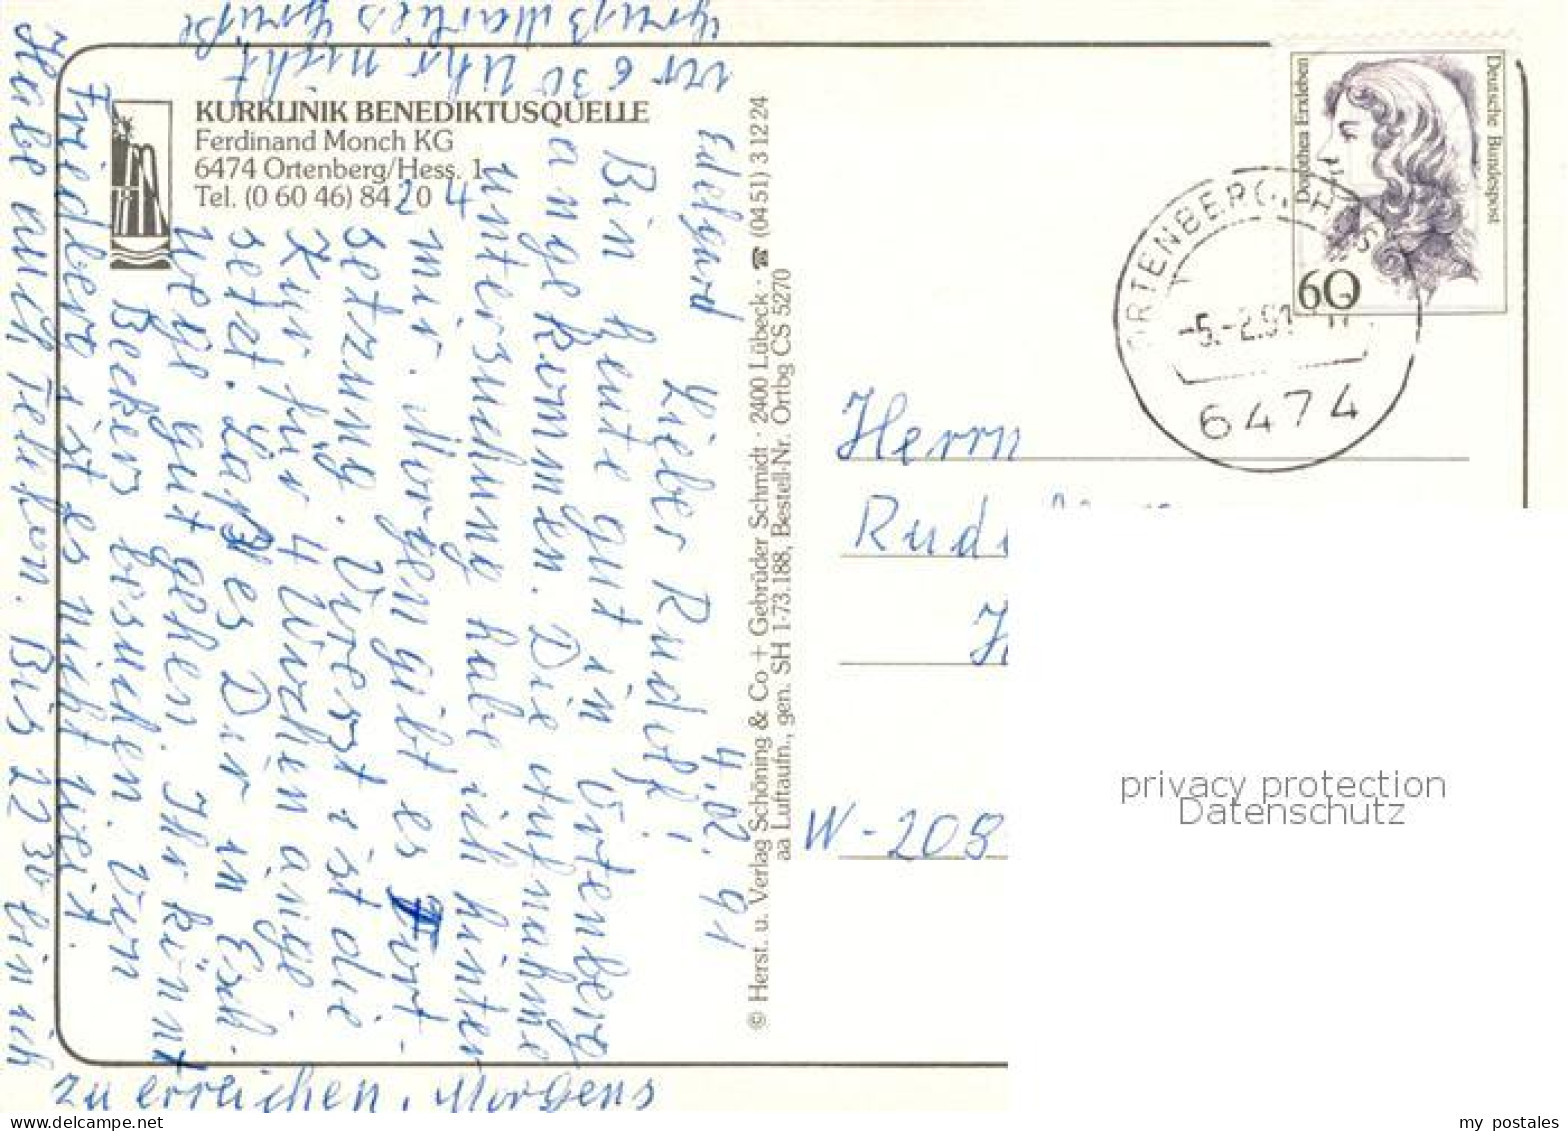 KURKLINIK BENEDIKTUSQUELLE
Ferdinand Monch KG
6474 Ortenberg/Hess. 1
Tel. (0 60 46) 84 20 4
4.02.91
Lieber Rudolf!
Bin heute gut in Ortenberg
angekommen. Die Aufnahme
untersuchung habe ich hinter
mir. Morgen gibt es Fort-
setzung. Vorerst ist die
Kur für 4 Wochen ange-
setzt. Laß es Dir in Esch-
wege gut gehen. Ihr könnt
Beckers besuchen. Von
Friedberg ist es nicht weit.
Habe auch Telefon. Bis 22 30 bin ich
zu erreichen. Morgens
vor 6 30 Uhr nicht
Gruß Marlies Grüße
Edelgard
© Herst. u. Verlag Schöning & Co + Gebrüder Schmidt · 2400 Lübeck · ☎ (04 51) 3 12 24
aa Luftaufn., gen. SH 1-73.188, Bestell-Nr. Ortbg CS 5270
Deutsche Bundespost
Dorothea Erxleben
60
ORTENBERG, HESS
-5.-2.91-17
6474
Herrn
Rud
H
W-209
privacy protection
Datenschutz
my postales